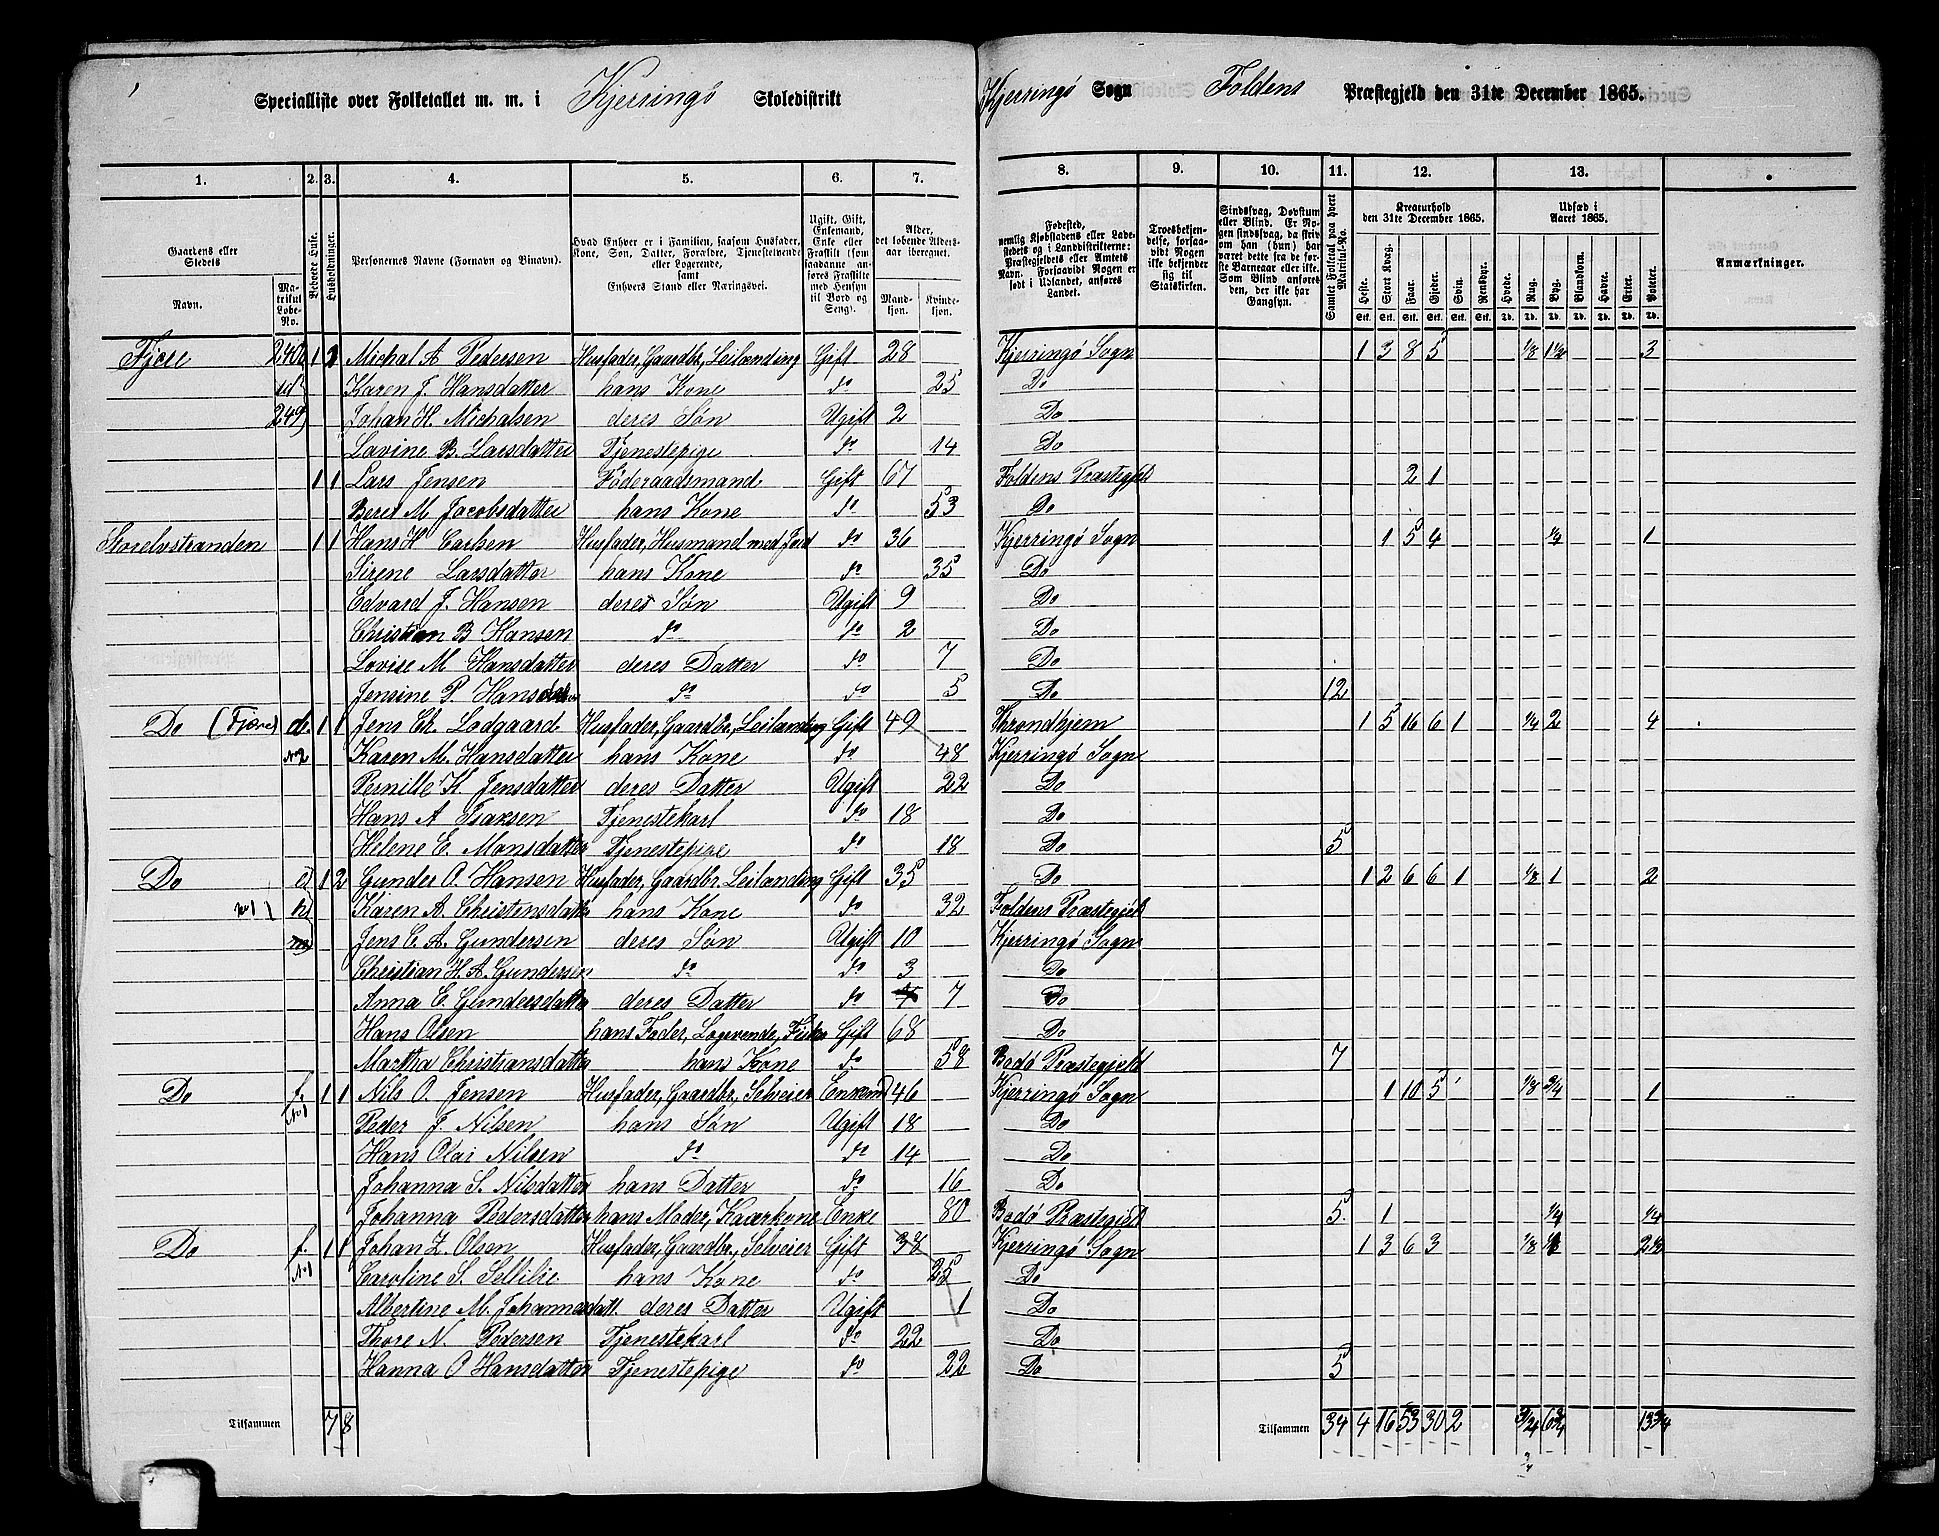 Specialliste over Folketallet m. m. i Kjerringø Skoledistrikt Kjerringø Sogn Foldens Præstegjeld den 31te December 1865.
1. 2. 3. 4. 5. 6. 7. 8. 9. 10. 11. 12. 13.
Gaardens eller Stedets Navn. Matrikul Løbe-No.
Beboede Huse.
Husholdninger.
Personernes Navne (Fornavn og Binavn).
Hvad Enhver er i Familien, saasom Husfader, Kone, Søn, Datter, Forældre, Tjenestetyende eller Logerende, samt Enhvers Stand eller Næringsvei.
Ugift, Gift, Enkemand, Enke eller Fraskilt (som saadanne anføres Fraskilte med Hensyn til Bord og Seng).
Alder, det løbende Aldersaar iberegnet. Mandkjøn. Kvindekjøn.
Fødested, nemlig Kjøbstadens eller Ladestedets og i Landdistrikterne: Præstegjeldets eller Amtets Navn. Forsaavidt Nogen er født i Udlandet, anføres Landet.
Troesbekjendelse, forsaavidt Nogen ikke bekjender sig til Statskirken.
Sindssvag, Døvstum eller Blind. Er Nogen sindssvag, da skriv om han (hun) har været dette fra de første Barneaar eller ikke. Som Blind ansføres den, der ikke har Gangsyn.
Samlet Folketal paa hvert Matrikul-No.
Kreaturhold den 31te December 1865. Heste. Stort Kvæg. Faar. Gjeder. Svin. Rensdyr.
Udsæd i Aaret 1865. Hvede. Rug. Byg. Blandkorn. Havre. Erter. Poteter.
Anmærkninger.
Fjære 240a 1 2 Michal A Pedersen Husfader, Gaardbr, Leilænding Gift 28 Kjerringø Sogn 1 3 8 5 1/8 1 1/2 3
Karen J. Hansdatter hans Kone do 25 Do
249 Johan H. Michalsen deres Søn Ugift 2 Do
Lavine B. Larsdatter Tjenestepige do 14 Do
1 1 Lars Jensen Føderaadsmand Gift 67 Foldens Præstegjeld 2 1
Beret M. Jacobsdatter hans Kone do 53 Do
Storelvstranden 1 1 Hans H Carlsen Husfader, Husmand med Jord do 36 Kjerringø Sogn 1 5 4 1/4 1
Sirene Larsdatter hans Kone do 35 Do
Edvard J. Hansen deres Søn Ugift 9 Do
Christian B Hansen do do 2 Do
Lovise M Hansdatter deres Datter do 7 Do
Jensine P. Hansdatter do do 5 Do 12
Do (Fjære) d. 1 1 Jens Ch. Lodgaard Husfader, Gaardbr, Leilænding Gift 49 Throndhjem 1 5 16 6 1 1/4 2 4
No2 Karen M. Hansdatter hans Kone do 48 Kjerringø Sogn
Pernille K Jensdatter deres Datter Ugift 22 Do
Hans A Isaksen Tjenestekarl do 18 Do
Helene E. Monsdatter Tjenestepige do 18 Do 5
Do 1 2 Gunder O. Hansen Husfader, Gaardbr. Leilænding Gift 35 Do 1 2 6 6 1 1/8 1 2
Karen A. Christensdatter hans Kone do 32 Foldens Præstegjeld
Jens C. A. Gundersen deres Søn Ugift 10 Kjerringø Sogn
Christian H. A. Gundersen do do 3 Do
Anna E. Gundersdatter deres Datter do 7 Do
Hans Olsen hans Fader, Logerende, Fisker Gift 68 Do
Martha Christiansdatter hans Kone do 58 Bodø Præstegjeld 7
Do f. 1 1 Nils O. Jensen Husfader, Gaardbr, Selveier Enkem 46 Kjerringø Sogn 1 10 5 1/8 3/4 1
No1 Peder J. Nilsen hans Søn Ugift 18 Do
Hans Olai Nilsen do do 14 Do
Johanna S. Nilsdatter hans Datter do 16 Do
Johanna Pedersdatter hans Moder, Kaarkone Enke 80 Bodø Præstegjeld 5 1 1/4 1/4
Do f. 1 1 Johan Z. Olsen Husfader, Gaardbr, Selveier Gift 38 Kjerringø Sogn 1 3 6 3 1/8 2 1/2
No1 Caroline S. Sellilie hans Kone do 25 Do
Albertine M. Johannesdatt. deres Datter Ugift 1 Do
Thore N. Pedersen Tjenestekarl do 22 Do
Hanna O Hansdatter Tjenestepige do 22 Do 5
Tilsammen 7 8 Tilsammen 34 4 16 53 30 2 3/4 6 3/4 13 3/4